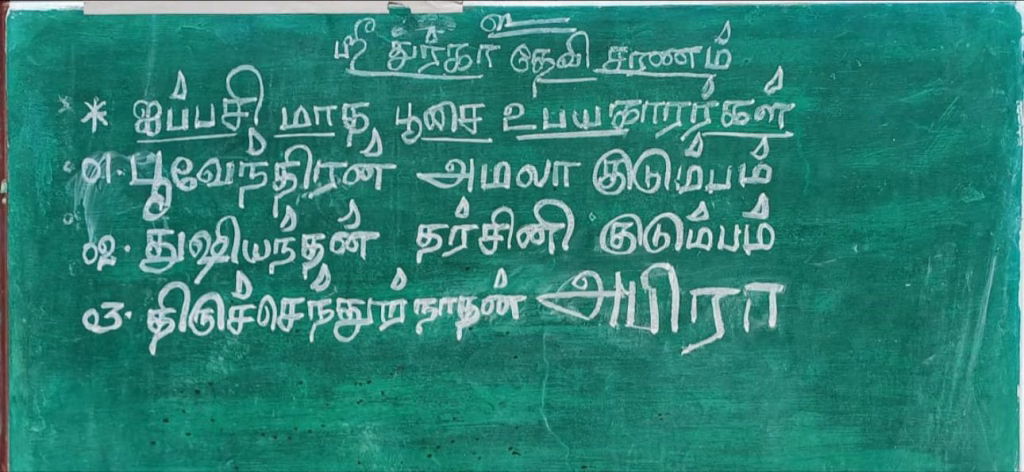 உ
ஸ்ரீ துர்கா தேவி சரணம்
* ஐப்பசி மாத பூசை உபயகாரர்கள்
01. பூவேந்திரன் அமலா குடும்பம்
02. துஷியந்தன் தர்சினி குடும்பம்
03. திருச்செந்தூர்நாதன் அபிரா